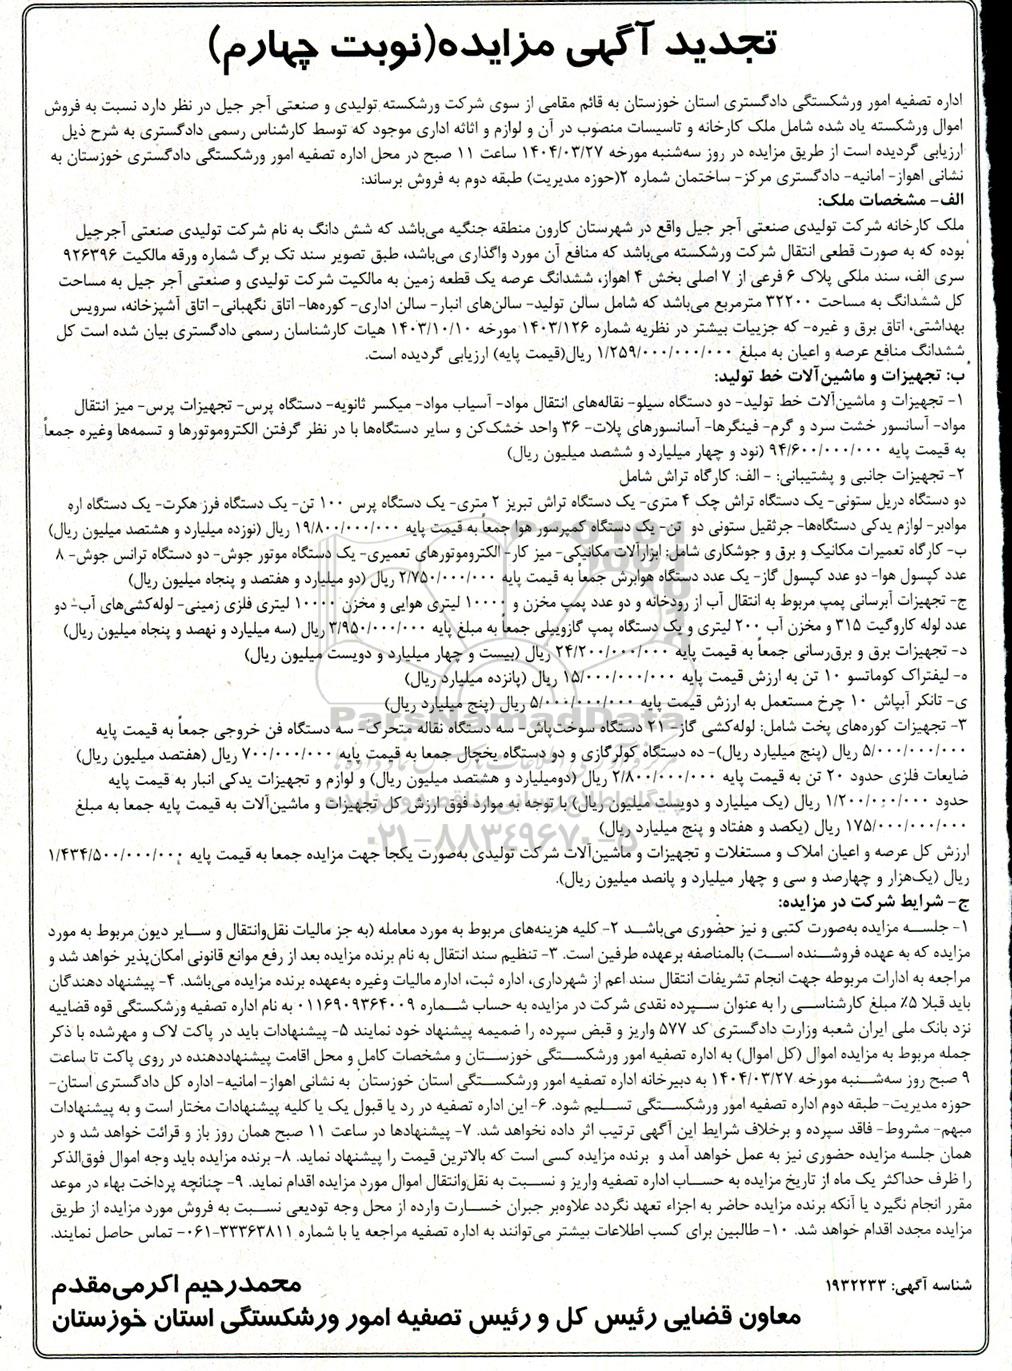 تجدید آگهی مزایده(نوبت چهارم)
اداره تصفیه امور ورشکستگی دادگستری استان خوزستان به قائم مقامی از سوی شرکت ورشکسته تولیدی و صنعتی آجر جیل در نظر دارد نسبت به فروش
اموال ورشکسته یاد شده شامل ملک کارخانه و تاسیسات منصوب در آن و لوازم و اثاثه اداری موجود که توسط کارشناس رسمی دادگستری به شرح ذیل
ارزیابی گردیده است از طریق مزایده در روز سه‌شنبه مورخه ۱۴۰۴/۰۳/۲۷ ساعت ۱۱ صبح در محل اداره تصفیه امور ورشکستگی دادگستری خوزستان به
نشانی اهواز- امانیه- دادگستری مرکز- ساختمان شماره ۲(حوزه مدیریت) طبقه دوم به فروش برساند:
الف- مشخصات ملک:
ملک کارخانه شرکت تولیدی صنعتی آجر جیل واقع در شهرستان کارون منطقه جنگیه می‌باشد که شش دانگ به نام شرکت تولیدی صنعتی آجرجیل
بوده که به صورت قطعی انتقال شرکت ورشکسته می‌باشد که منافع آن مورد واگذاری می‌باشد، طبق تصویر سند تک برگ شماره ورقه مالکیت ۹۲۶۳۹۶
سری الف، سند ملکی پلاک ۶ فرعی از ۷ اصلی بخش ۴ اهواز، ششدانگ عرصه یک قطعه زمین به مالکیت شرکت تولیدی و صنعتی آجر جیل به مساحت
کل ششدانگ به مساحت ۳۲۲۰۰ مترمربع می‌باشد که شامل سالن تولید- سالن‌های انبار- سالن اداری- کوره‌ها- اتاق نگهبانی- اتاق آشپزخانه، سرویس
بهداشتی، اتاق برق و غیره- که جزییات بیشتر در نظریه شماره ۱۴۰۳/۱۲۶ مورخه ۱۴۰۳/۱۰/۱۰ هیات کارشناسان رسمی دادگستری بیان شده است کل
ششدانگ منافع عرصه و اعیان به مبلغ ۱/۲۵۹/۰۰۰/۰۰۰/۰۰۰ ریال(قیمت پایه) ارزیابی گردیده است.
ب: تجهیزات و ماشین‌آلات خط تولید:
۱- تجهیزات و ماشین‌آلات خط تولید- دو دستگاه سیلو- نقاله‌های انتقال مواد- آسیاب مواد- میکسر ثانویه- دستگاه پرس- تجهیزات پرس- میز انتقال
مواد- آسانسور خشت سرد و گرم- فینگرها- آسانسورهای پلات- ۳۶ واحد خشک‌کن و سایر دستگاه‌ها با در نظر گرفتن الکتروموتورها و تسمه‌ها وغیره جمعاً
به قیمت پایه ۹۴/۶۰۰/۰۰۰/۰۰۰ (نود و چهار میلیارد و ششصد میلیون ریال)
۲- تجهیزات جانبی و پشتیبانی: - الف: کارگاه تراش شامل
دو دستگاه دریل ستونی- یک دستگاه تراش چک ۴ متری- یک دستگاه تراش تبریز ۲ متری- یک دستگاه پرس ۱۰۰ تن- یک دستگاه فرز هکرت- یک دستگاه اره
موادبر- لوازم یدکی دستگاه‌ها- جرثقیل ستونی دو تن- یک دستگاه کمپرسور هوا جمعاً به قیمت پایه ۱۹/۸۰۰/۰۰۰/۰۰۰ ریال (نوزده میلیارد و هشتصد میلیون ریال)
ب- کارگاه تعمیرات مکانیک و برق و جوشکاری شامل: ابزارآلات مکانیکی- میز کار- الکتروموتورهای تعمیری- یک دستگاه موتور جوش- دو دستگاه ترانس جوش- ۸
عدد کپسول هوا- دو عدد کپسول گاز- یک عدد دستگاه هوابرش جمعاً به قیمت پایه ۲/۷۵۰/۰۰۰/۰۰۰ ریال (دو میلیارد و هفتصد و پنجاه میلیون ریال)
ج- تجهیزات آبرسانی پمپ مربوط به انتقال آب از رودخانه و دو عدد پمپ مخزن و ۱۰۰۰۰ لیتری هوایی و مخزن ۱۰۰۰۰ لیتری فلزی زمینی- لوله‌کشی‌های آب- دو
عدد لوله کاروگیت ۳۱۵ و مخزن آب ۲۰۰ لیتری و یک دستگاه پمپ گازوییلی جمعاً به مبلغ پایه ۳/۹۵۰/۰۰۰/۰۰۰ ریال (سه میلیارد و نهصد و پنجاه میلیون ریال)
د- تجهیزات برق و برق‌رسانی جمعاً به قیمت پایه ۲۴/۲۰۰/۰۰۰/۰۰۰ ریال (بیست و چهار میلیارد و دویست میلیون ریال)
ه- لیفتراک کوماتسو ۱۰ تن به ارزش قیمت پایه ۱۵/۰۰۰/۰۰۰/۰۰۰ ریال (پانزده میلیارد ریال)
ی- تانکر آبپاش ۱۰ چرخ مستعمل به ارزش قیمت پایه ۵/۰۰۰/۰۰۰/۰۰۰ ریال (پنج میلیارد ریال)
۳- تجهیزات کوره‌های پخت شامل: لوله‌کشی گاز- ۲۱ دستگاه سوخت‌پاش- سه دستگاه نقاله متحرک- سه دستگاه فن خروجی جمعاً به قیمت پایه
۵/۰۰۰/۰۰۰/۰۰۰ ریال (پنج میلیارد ریال)- ده دستگاه کولرگازی و دو دستگاه یخچال جمعا به قیمت پایه ۷۰۰/۰۰۰/۰۰۰ ریال (هفتصد میلیون ریال)
ضایعات فلزی حدود ۲۰ تن به قیمت پایه ۲/۸۰۰/۰۰۰/۰۰۰ ریال (دومیلیارد و هشتصد میلیون ریال) و لوازم و تجهیزات یدکی انبار به قیمت پایه
حدود ۱/۲۰۰/۰۰۰/۰۰۰ ریال (یک میلیارد و دویست میلیون ریال) با توجه به موارد فوق ارزش کل تجهیزات و ماشین‌آلات به قیمت پایه جمعا به مبلغ
۱۷۵/۰۰۰/۰۰۰/۰۰۰ ریال (یکصد و هفتاد و پنج میلیارد ریال)
ارزش کل عرصه و اعیان املاک و مستغلات و تجهیزات و ماشین‌آلات شرکت تولیدی به‌صورت یکجا جهت مزایده جمعا به قیمت پایه ۱/۴۳۴/۵۰۰/۰۰۰/۰۰۰
ریال (یک‌هزار و چهارصد و سی و چهار میلیارد و پانصد میلیون ریال).
ج- شرایط شرکت در مزایده:
۱- جلسه مزایده به‌صورت کتبی و نیز حضوری می‌باشد ۲- کلیه هزینه‌های مربوط به مورد معامله (به جز مالیات نقل‌وانتقال و سایر دیون مربوط به مورد
مزایده که به عهده فروشنده است) بالمناصفه برعهده طرفین است. ۳- تنظیم سند انتقال به نام برنده مزایده بعد از رفع موانع قانونی امکان‌پذیر خواهد شد و
مراجعه به ادارات مربوطه جهت انجام تشریفات انتقال سند اعم از شهرداری، اداره ثبت، اداره مالیات وغیره به‌عهده برنده مزایده می‌باشد. ۴- پیشنهاد دهندگان
باید قبلا ۵٪ مبلغ کارشناسی را به عنوان سپرده نقدی شرکت در مزایده به حساب شماره ۰۱۱۶۹۰۹۳۶۴۰۰۹ به نام اداره تصفیه ورشکستگی قوه قضاییه
نزد بانک ملی ایران شعبه وزارت دادگستری کد ۵۷۷ واریز و قبض سپرده را ضمیمه پیشنهاد خود نمایند ۵- پیشنهادات باید در پاکت لاک و مهرشده با ذکر
جمله مربوط به مزایده اموال (کل اموال) به اداره تصفیه امور ورشکستگی خوزستان و مشخصات کامل و محل اقامت پیشنهاددهنده در روی پاکت تا ساعت
۹ صبح روز سه‌شنبه مورخه ۱۴۰۴/۰۳/۲۷ به دبیرخانه اداره تصفیه امور ورشکستگی استان خوزستان به نشانی اهواز- امانیه- اداره کل دادگستری استان-
حوزه مدیریت- طبقه دوم اداره تصفیه امور ورشکستگی تسلیم شود. ۶- این اداره تصفیه در رد یا قبول یک یا کلیه پیشنهادات مختار است و به پیشنهادات
مبهم- مشروط- فاقد سپرده و برخلاف شرایط این آگهی ترتیب اثر داده نخواهد شد. ۷- پیشنهادها در ساعت ۱۱ صبح همان روز باز و قرائت خواهد شد و در
همان جلسه مزایده حضوری نیز به عمل خواهد آمد و برنده مزایده کسی است که بالاترین قیمت را پیشنهاد نماید. ۸- برنده مزایده باید وجه اموال فوق‌الذکر
را ظرف حداکثر یک ماه از تاریخ مزایده به حساب اداره تصفیه واریز و نسبت به نقل‌وانتقال اموال مورد مزایده اقدام نماید. ۹- چنانچه پرداخت بهاء در موعد
مقرر انجام نگیرد یا آنکه برنده مزایده حاضر به اجزاء تعهد نگردد علاوه‌بر جبران خسارت وارده از محل وجه تودیعی نسبت به فروش مورد مزایده از طریق
مزایده مجدد اقدام خواهد شد. ۱۰- طالبین برای کسب اطلاعات بیشتر می‌توانند به اداره تصفیه مراجعه یا با شماره ۳۳۳۶۳۸۱۱-۰۶۱ تماس حاصل نمایند.
شناسه آگهی: ۱۹۳۲۲۳۳
محمدرحیم اکرمی‌مقدم
معاون قضایی رئیس کل و رئیس تصفیه امور ورشکستگی استان خوزستان
ParsNamadData
۰۲۱-۸۸۳۴۹۶۷۰-۵